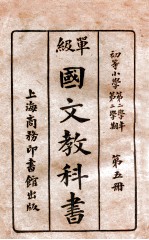 單級
國文教科書
初等小學 第二學年 第二學期
第五册
上海商務印書館出版